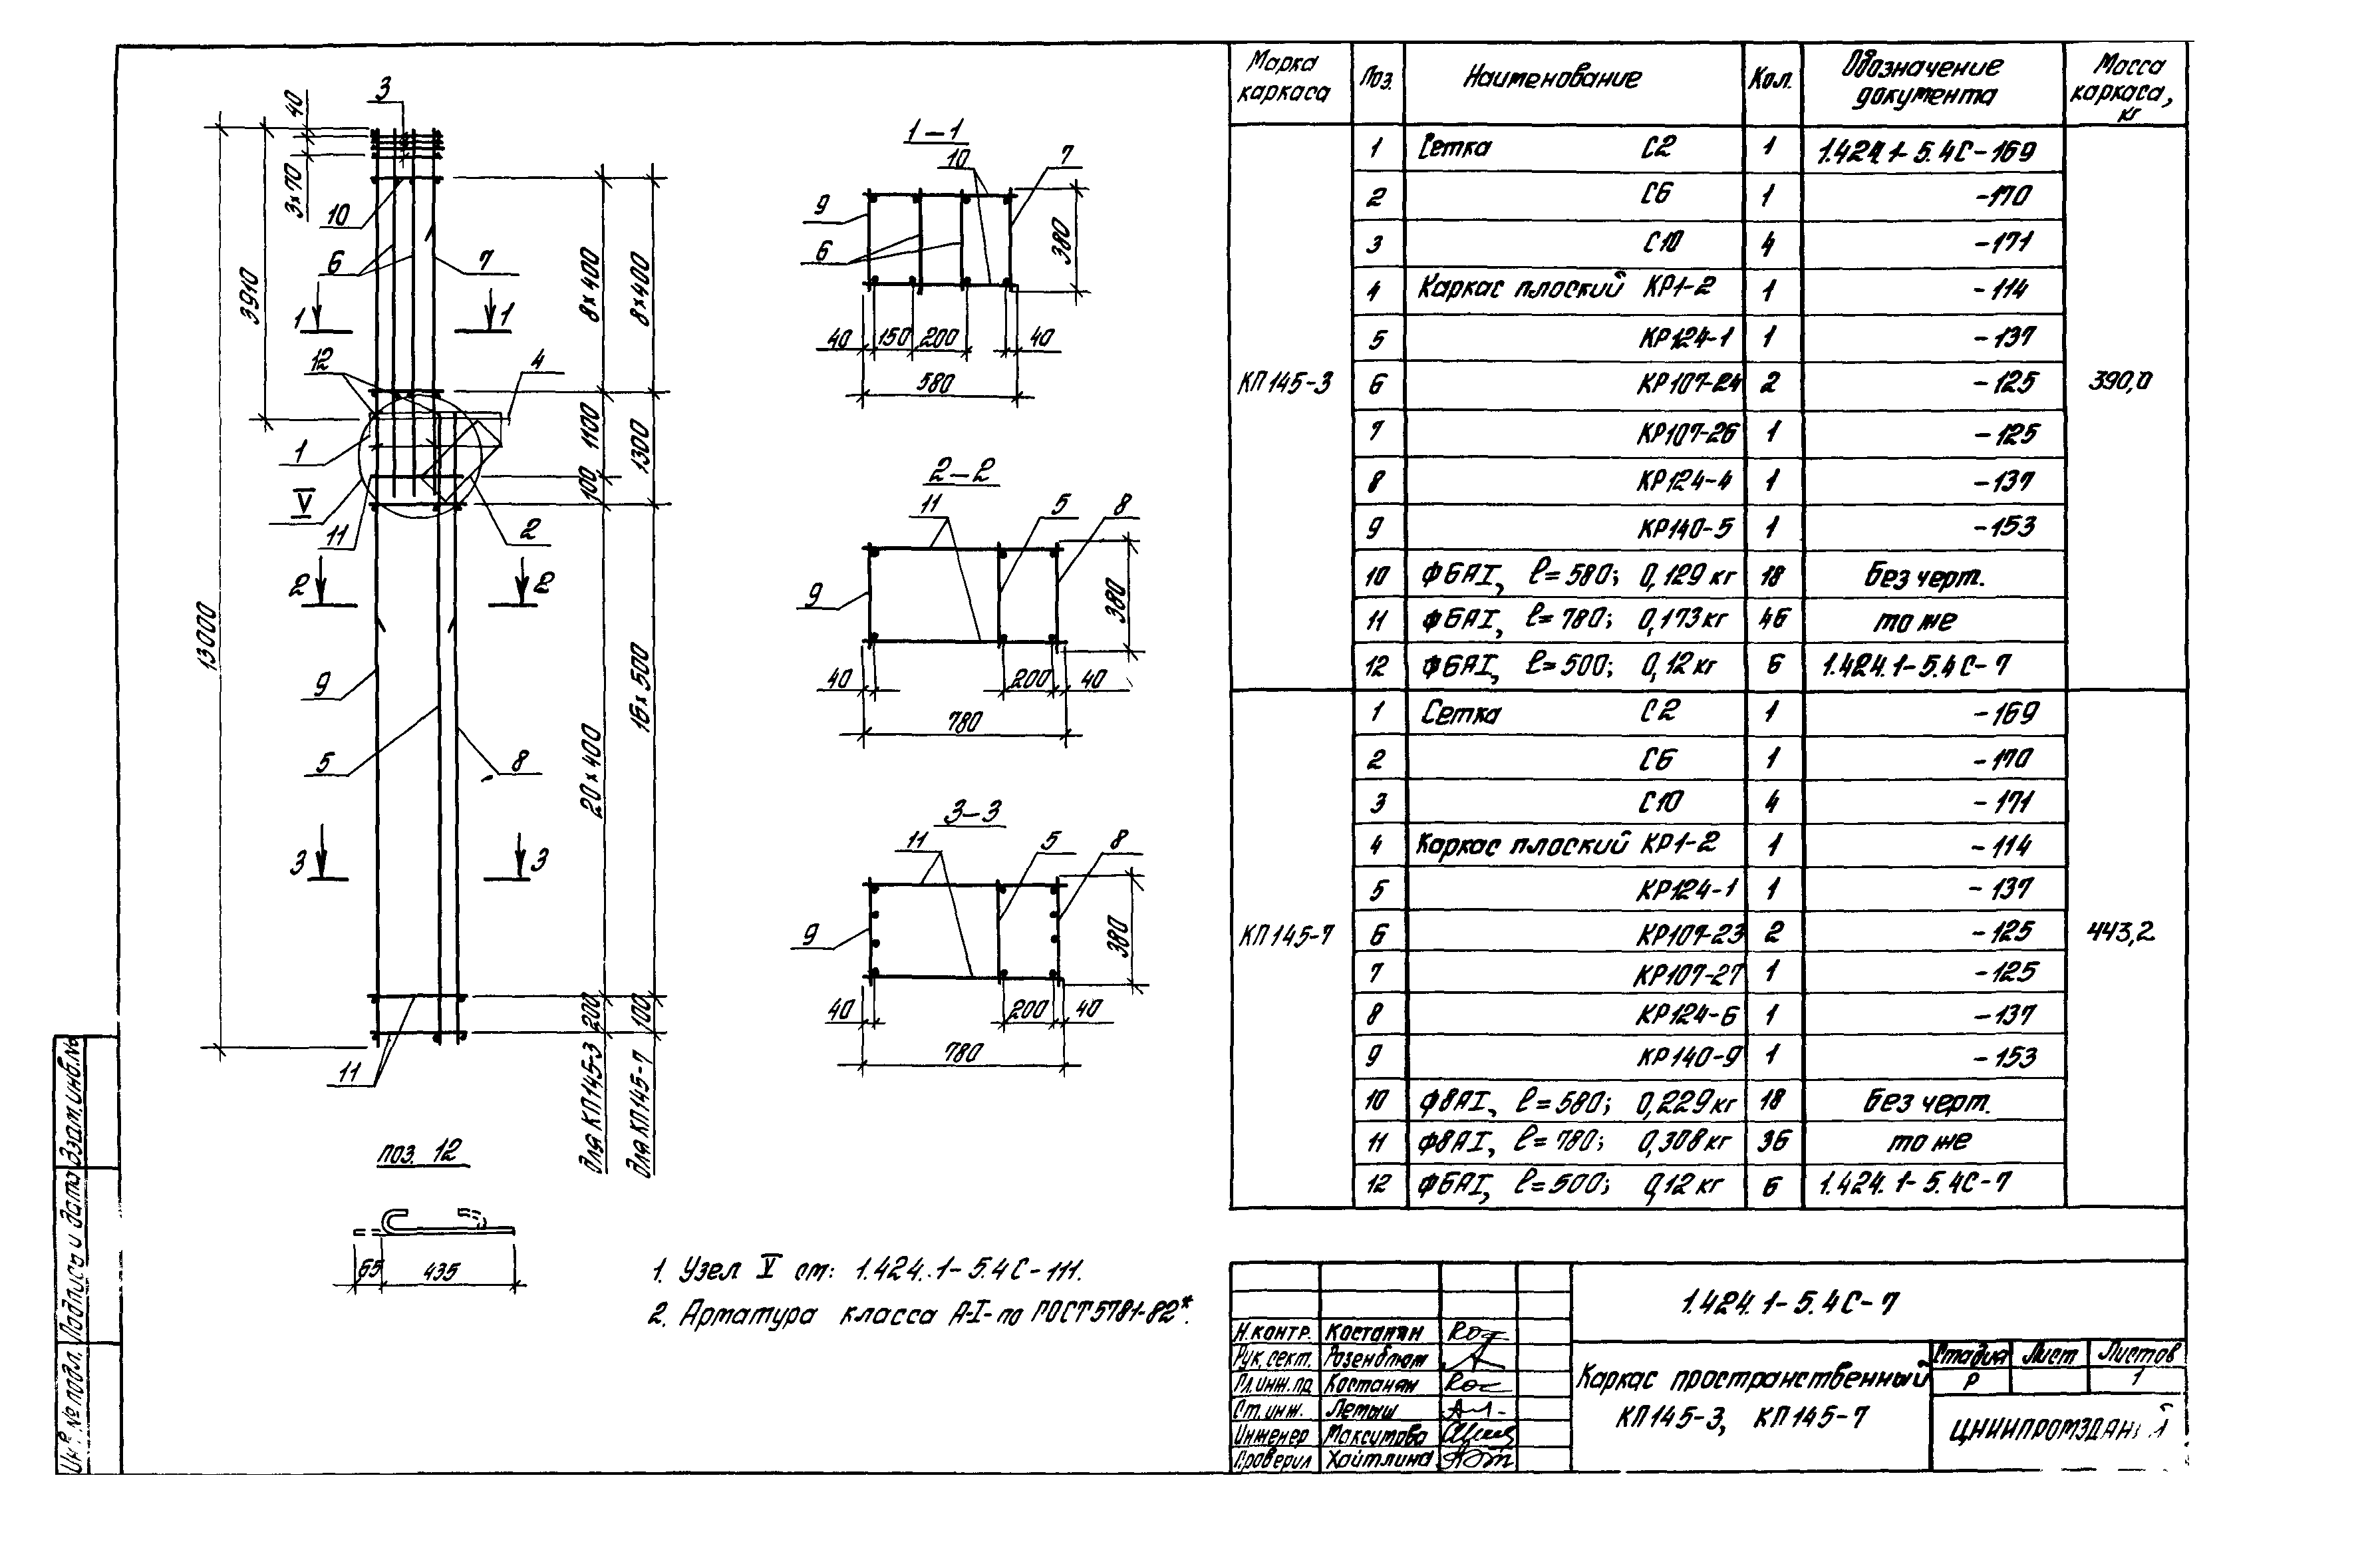 Марка каркаса
Поз.
Наименование
Кол.
Обозначение документа
Масса каркаса, кг
КП145-3
1 Сетка С2 1 1.424.1-5.4С-169
2 С6 1 -170
3 С10 4 -171
4 Каркас плоский КР1-2 1 -114
5 КР124-1 1 -137
6 КР107-24 2 -125
7 КР107-26 1 -125
8 КР124-4 1 -137
9 КР140-5 1 -153
10 Ф6АI, ℓ=580; 0,129 кг 18 Без черт.
11 Ф6АI, ℓ=780; 0,173 кг 46 то же
12 Ф6АI, ℓ=500; 0,12 кг 6 1.424.1-5.4С-7
390,0
КП145-7
1 Сетка С2 1 -169
2 С6 1 -170
3 С10 4 -171
4 Каркас плоский КР1-2 1 -114
5 КР124-1 1 -137
6 КР107-23 2 -125
7 КР107-27 1 -125
8 КР124-6 1 -137
9 КР140-9 1 -153
10 Ф8АI, ℓ=580; 0,229 кг 18 Без черт.
11 Ф8АI, ℓ=780; 0,308 кг 36 то же
12 Ф6АI, ℓ=500; 0,12 кг 6 1.424.1-5.4С-7
443,2
3
40
3×70
10
6
7
3910
1
1
12
4
1
V
11
2
2
2
13000
9
5
8
3
3
11
8×400
8×400
1100
1300
100
20×400
16×500
200
100
для КП145-3
для КП145-7
1-1
10
7
9
6
380
40
150
200
40
580
2-2
11
5
8
9
380
40
200
40
780
3-3
11
5
8
9
380
40
200
40
780
поз. 12
65
435
1. Узел V см: 1.424.1-5.4С-111.
2. Арматура класса А-I-по ГОСТ 5781-82*.
1.424.1-5.4С-7
Н.контр. Костанян
Рук.сект. Розенблюм
Гл.инж.пр Костанян
Ст.инж. Летыш
Инженер Максимова
Проверил Хайтлина
Каркас пространственный
КП145-3, КП145-7
Стадия Лист Листов
Р 1
ЦНИИПРОМЗДАНИЙ
Взам.инв.№
Подпись и дата
Инв.№ подл.